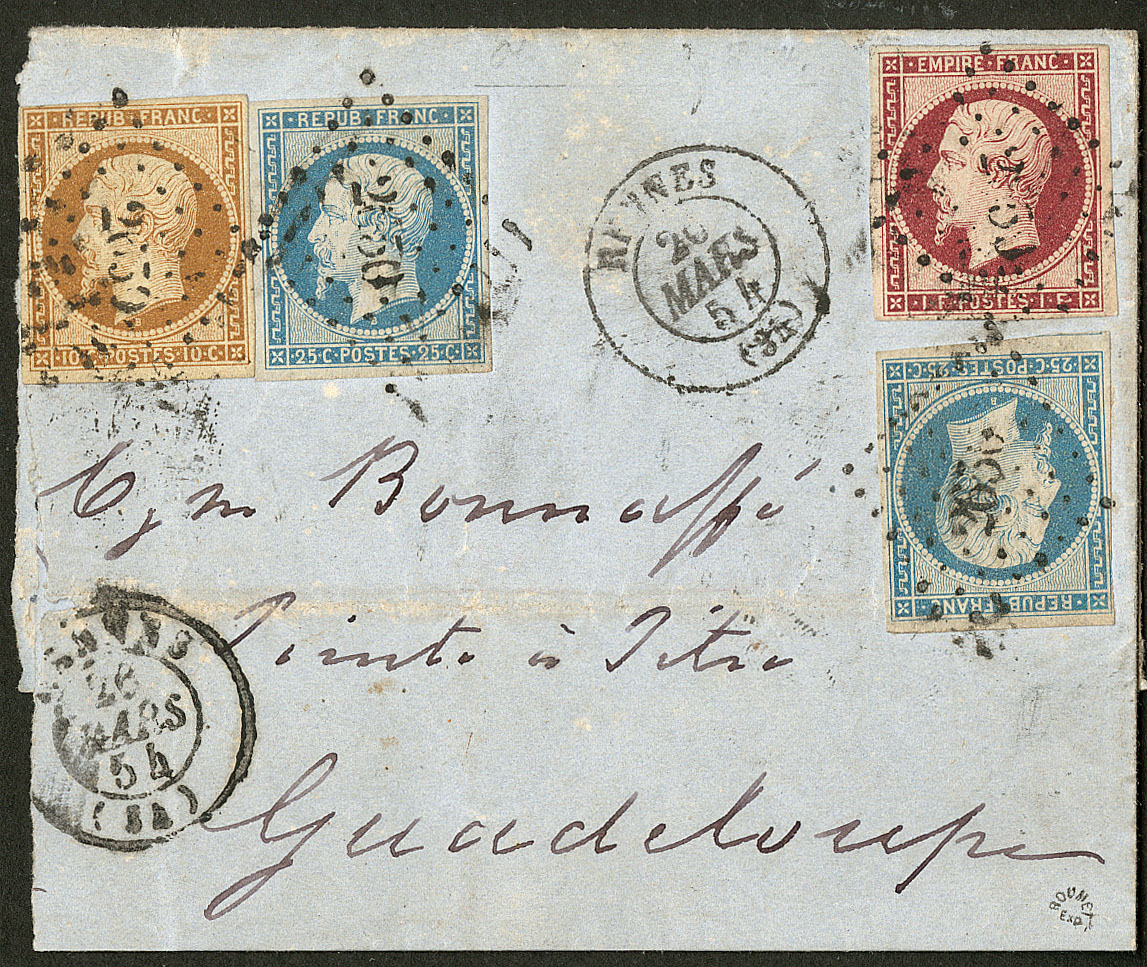 REPUB. FRANC
10 C. POSTES. 10. C.
REPUB. FRANC.
25. C. POSTES. 25. C.
RENNES
26
MARS
54
(34)
EMPIRE. FRANC.
POSTES. 1. F.
25. C. POSTES. 25. C.
REPUB. FRANC
Bonnaffé
Pointe à Pitre
Guadeloupe
26
MARS
54
(34)
ROUMET
EXP.